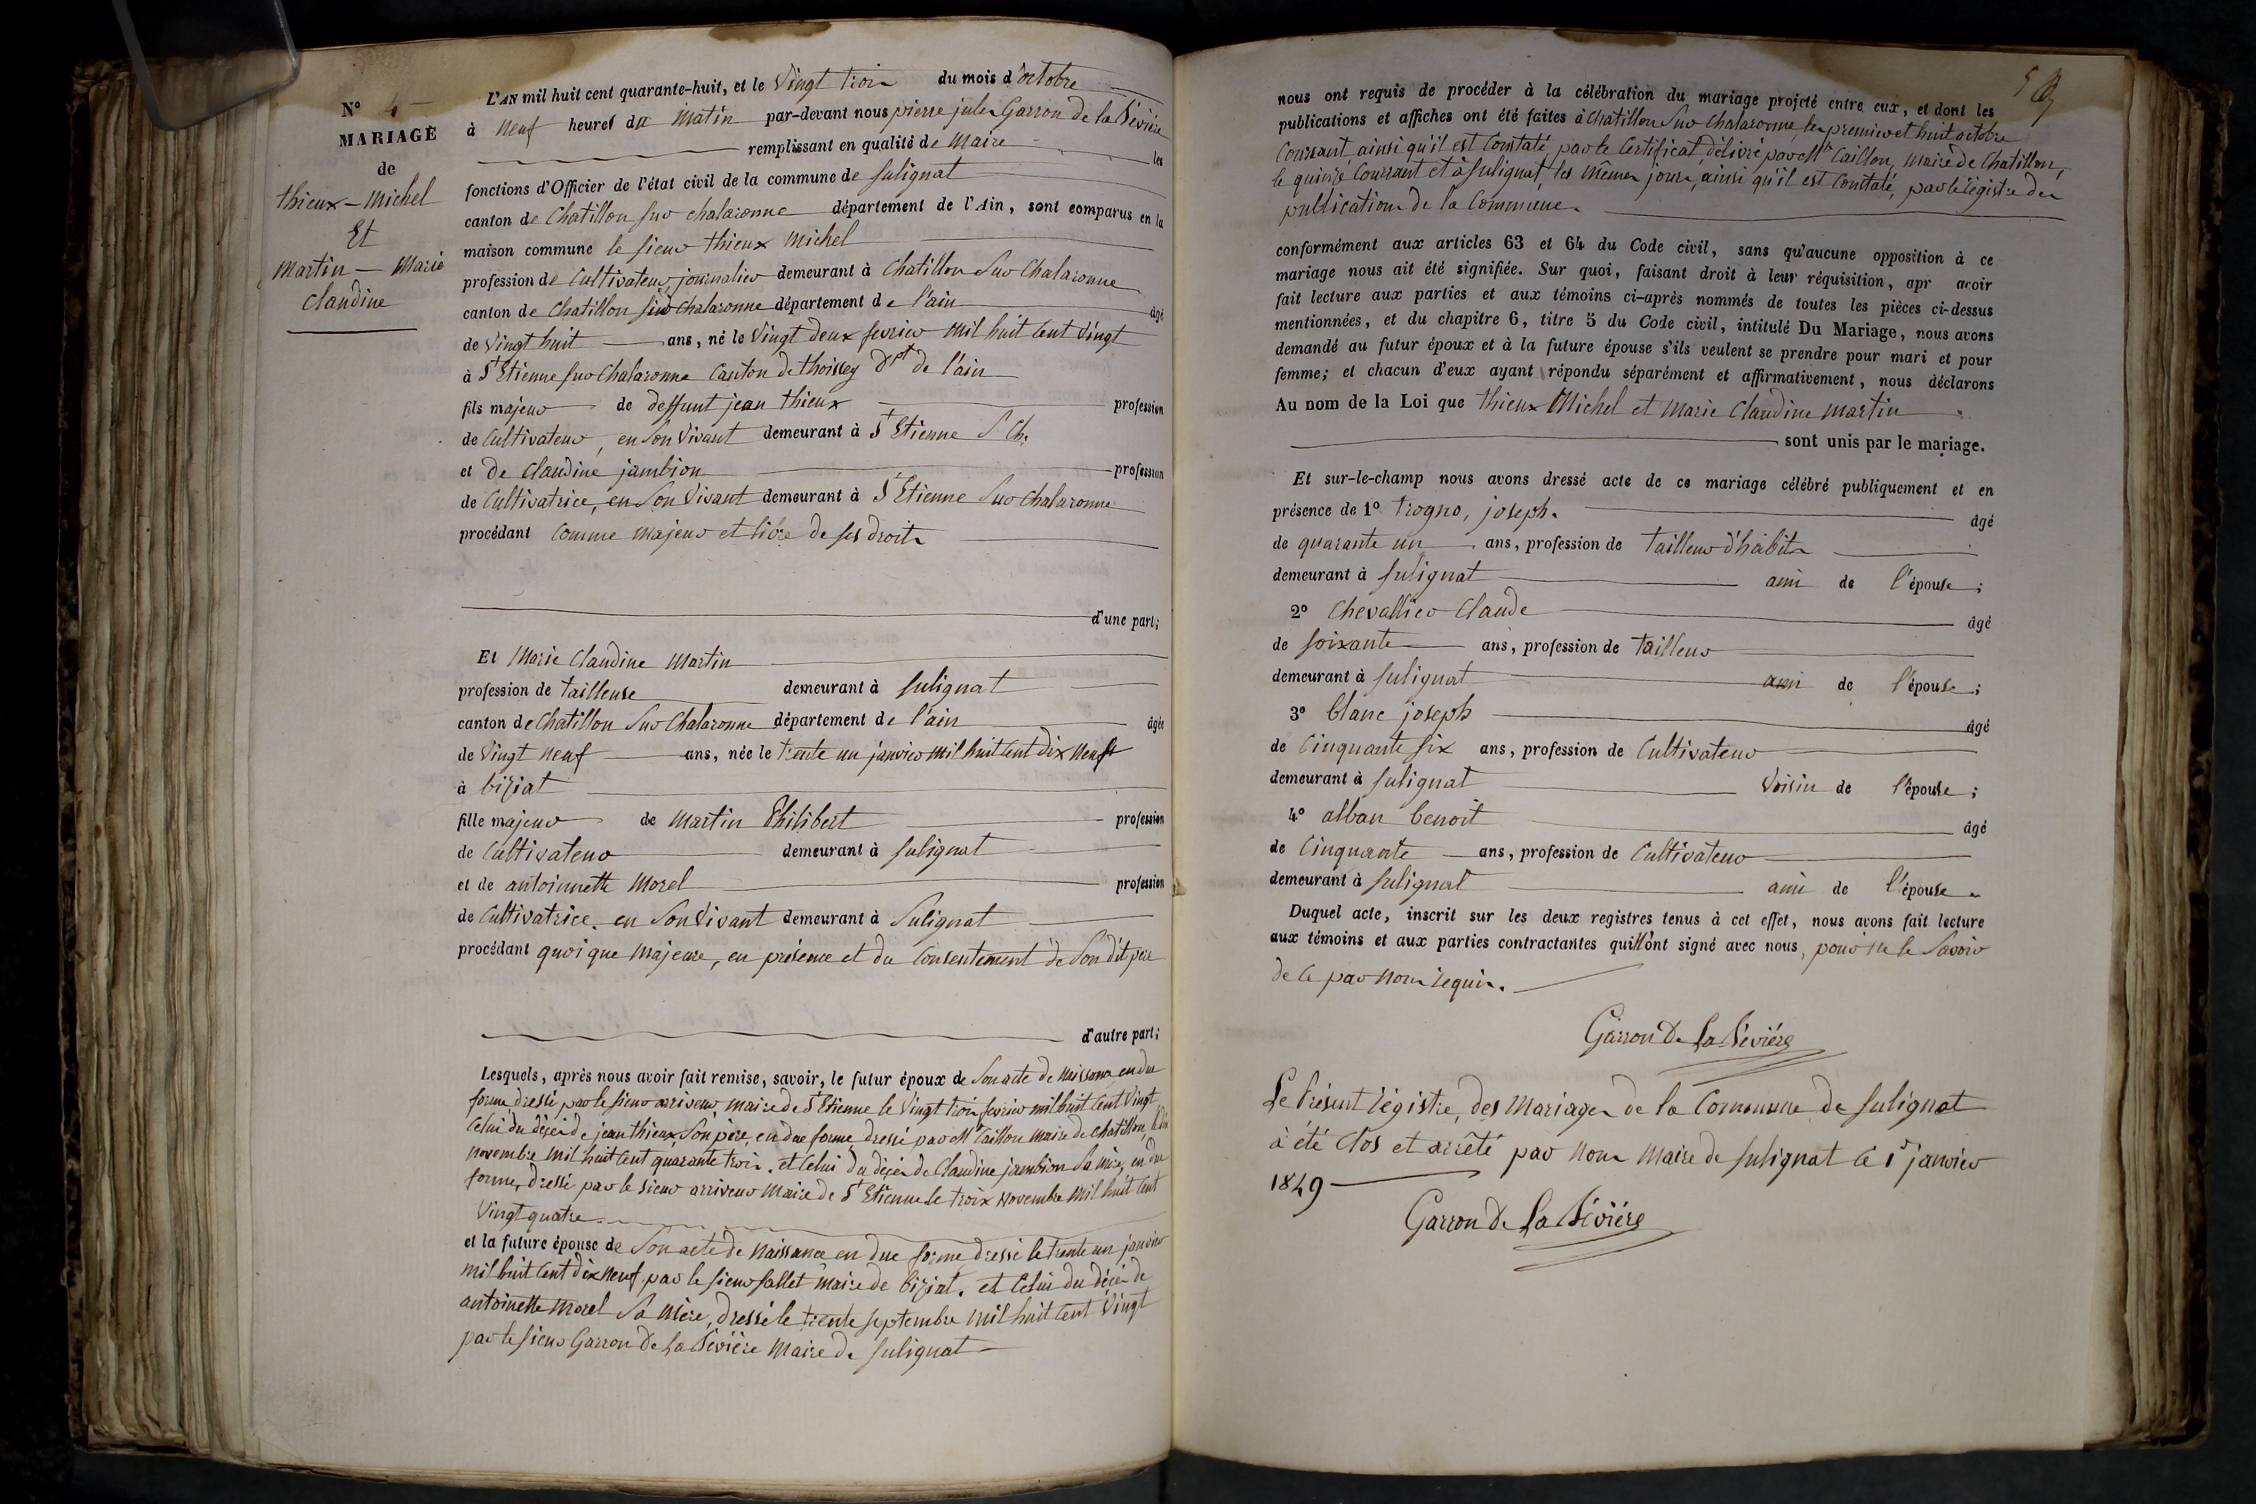 N° 4
MARIAGE
de
thieux - Michel
Et
Martin - Marie
Claudine
L'AN mil huit cent quarante-huit, et le Vingt trois du mois d'octobre
à neuf heures du Matin par-devant nous pierre jules Garron de la Bévière
remplissant en qualité de Maire les
fonctions d'Officier de l'état civil de la commune de Sulignat
canton de Chatillon sur chalaronne département de l'Ain, sont comparus en la
maison commune le sieur thieux Michel
profession de Cultivateur, journalier demeurant à Chatillon Sur Chalaronne
canton de Chatillon sur Chalaronne département de l'ain âgé
de Vingt huit ans, né le Vingt deux fevrier mil huit Cent Vingt
à St Etienne sur Chalaronne Canton de thoissey Dpt de l'ain
fils majeur de deffunt jean thieux profession
de Cultivateur, en Son Vivant demeurant à St Etienne S Ch.
et de Claudine jambion profession
de Cultivatrice, en Son Vivant demeurant à St Etienne Sur Chalaronne
procédant Comme majeur et libre de ses droits
d'une part;
Et Marie Claudine Martin
profession de tailleuse demeurant à Sulignat
canton de Chatillon Sur Chalaronne département de l'ain âgée
de Vingt neuf ans, née le trente un janvier mil huit Cent Dix Neuf
à biziat
fille majeur de Martin Philibert profession
de Cultivateur demeurant à Sulignat
et de antoinnette Morel profession
de Cultivatrice. en Son Vivant demeurant à Sulignat
procédant quoique Majeure, en présence et du Consentement de Son dit père
d'autre part;
Lesquels, après nous avoir fait remise, savoir, le futur époux de Son acte de Naissance en due
forme dressé par le sieur arriveur, maire de St Etienne le Vingt trois fevrier mil huit Cent Vingt
Celui du décès de jean thieux, Son père, en due forme dressé par Mr Caillon Maire de Chatillon, le
novembre mil huit Cent quarante trois. et Celui du décès de Claudine jambion Sa mère, en due
forme, dressé par le sieur arriveur Maire de St Etienne le troix Novembre Mil huit Cent
Vingt quatre.
et la future épouse de Son acte de Naissance en due forme dressé le trente un janvier
mil huit Cent dix Neuf, par le sieur Sallet maire de biziat. et Celui du décès de
antoinette Morel Sa Mère, dressé le trente septembre mil huit Cent Vingt
par le sieur Garron de La Bévière Maire de Sulignat
nous ont requis de procéder à la célébration du mariage projeté entre eux, et dont les
publications et affiches ont été faites à Chatillon Sur Chalaronne les premier et huit octobre
Courrant, ainsi qu'il est Constaté par le Certificat délivré par Mr Caillon, Maire de Chatillon,
le quinze Courrant et à Sulignat, les Mêmes jours, ainsi qu'il est Constaté, par le régistre des
publications de la Commune.
conformément aux articles 63 et 64 du Code civil, sans qu'aucune opposition à ce
mariage nous ait été signifiée. Sur quoi, faisant droit à leur réquisition, apr avoir
fait lecture aux parties et aux témoins ci-après nommés de toutes les pièces ci-dessus
mentionnées, et du chapitre 6, titre 5 du Code civil, intitulé Du Mariage, nous avons
demandé au futur époux et à la future épouse s'ils veulent se prendre pour mari et pour
femme; et chacun d'eux ayant répondu séparément et affirmativement, nous déclarons
Au nom de la Loi que thieux Michel et Marie Claudine Martin
sont unis par le mariage.
Et sur-le-champ nous avons dressé acte de ce mariage célébré publiquement et en
présence de 1° trogno, joseph. âgé
de quarante un ans, profession de tailleur d'habits
demeurant à Sulignat ami de l'épouse;
2° Chevallier Claude âgé
de soixante ans, profession de tailleur
demeurant à Sulignat ami de l'épouse;
3° blanc joseph âgé
de Cinquante six ans, profession de Cultivateur
demeurant à Sulignat Voisin de l'épouse;
4° alban benoit âgé
de Cinquante ans, profession de Cultivateur
demeurant à Sulignat ami de l'épouse.
Duquel acte, inscrit sur les deux registres tenus à cet effet, nous avons fait lecture
aux témoins et aux parties contractantes qui n'ont signé avec nous, pour ne le Savoir
de ce par Nous requis.
Garron De La Bévière
Le Présent régistre, des Mariages de la Commune de Sulignat
à été Clos et arrêté par Nous Maire de Sulignat le 1r janvier
1849
Garron De La Bévière